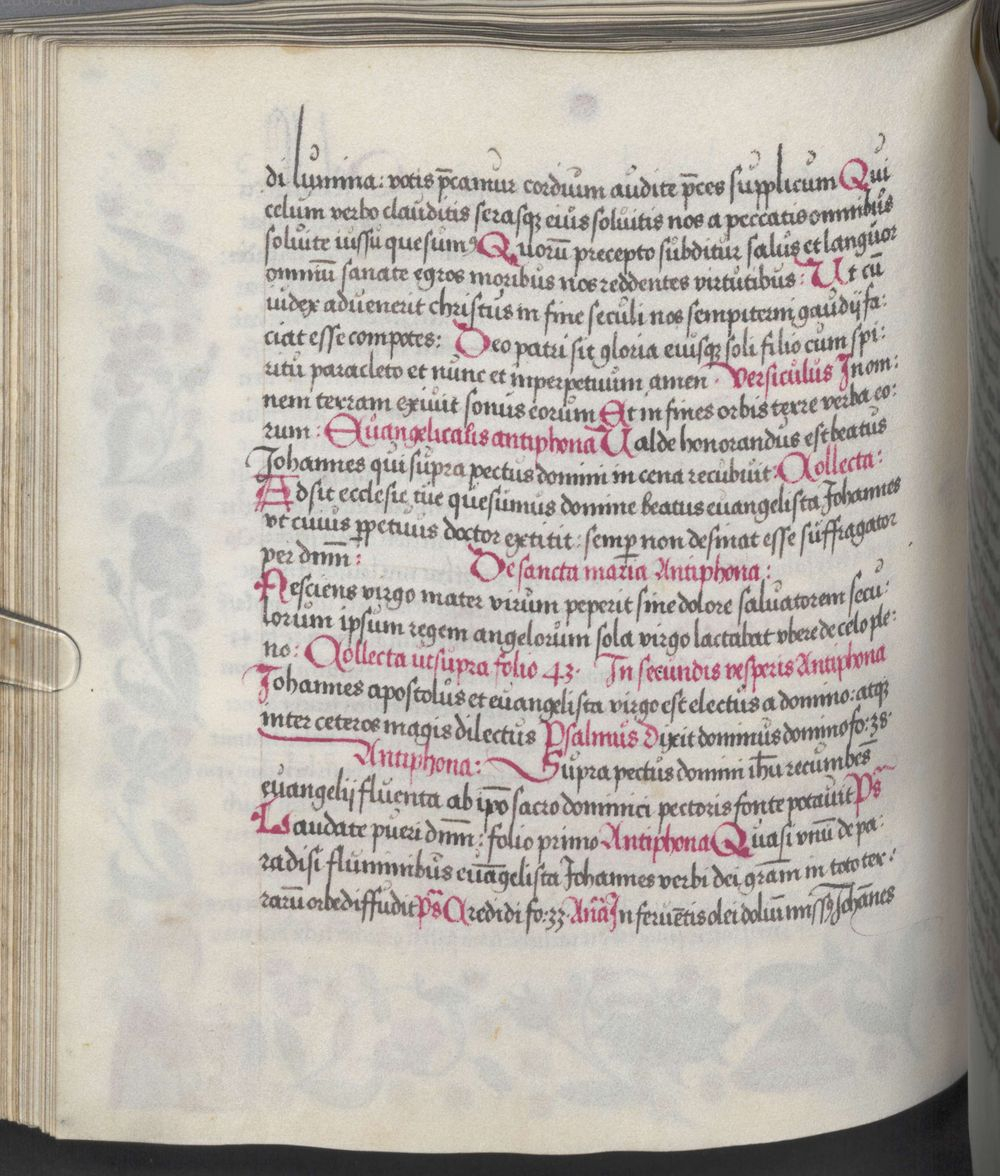 di lumina: votis p̄camur cordium audite p̄ces supplicum Qui
celum verbo clauditis serasqȝ eius soluitis nos a peccatis omnibus
soluite iussu quesumꝰ Quorū precepto subditur salus et languor
omniū sanate egros moribus nos reddentes virtutibus: Ut cū
iudex aduenerit christus in fine seculi nos sempiterni gaudij fa:
ciat esse compotes: Deo patri sit gloria eiusqȝ soli filio cum spi:
ritu paracleto et nunc et inperpetuum amen · Versiculus In om:
nem terram exiuit sonus eorum Et in fines orbis terre verba eo:
rum: Euangelicalis antiphona Ualde honorandus est beatus
Johannes qui supra pectus domini in cena recubuit: Collecta:
Adsit ecclesie tue quesumus domine beatus euangelista Johannes
vt cuius ꝑpetuus doctor extitit: semꝑ non desinat esse suffragator
per dnm̄: De sancta maria Antiphona:
Nesciens virgo mater virum peperit sine dolore saluatorem secu:
lorum ipsum regem angelorum sola virgo lactabat vbere de celo ple:
no: Collecta ut supra folio 43· In secundis vesperis Antiphona
Johannes apostolus et euangelista virgo est electus a domino: atqȝ
inter ceteros magis dilectus Psalmus Dixit dominus domino fo: 38·
Antiphona: Supra pectus domini ih̄u recumbēs
euangelij fluenta ab ip̄o sacro dominici pectoris fonte potauit Ps̄
Laudate pueri dnm̄: folio primo Antiphona Quasi vnū de pa:
radisi fluminibus euāgelista Johannes verbi dei gr̄am in toto ter:
rarū orbe diffudit ps̄ Credidi fo: 33· An̄a In feruētis olei doliū missȝ Johānes